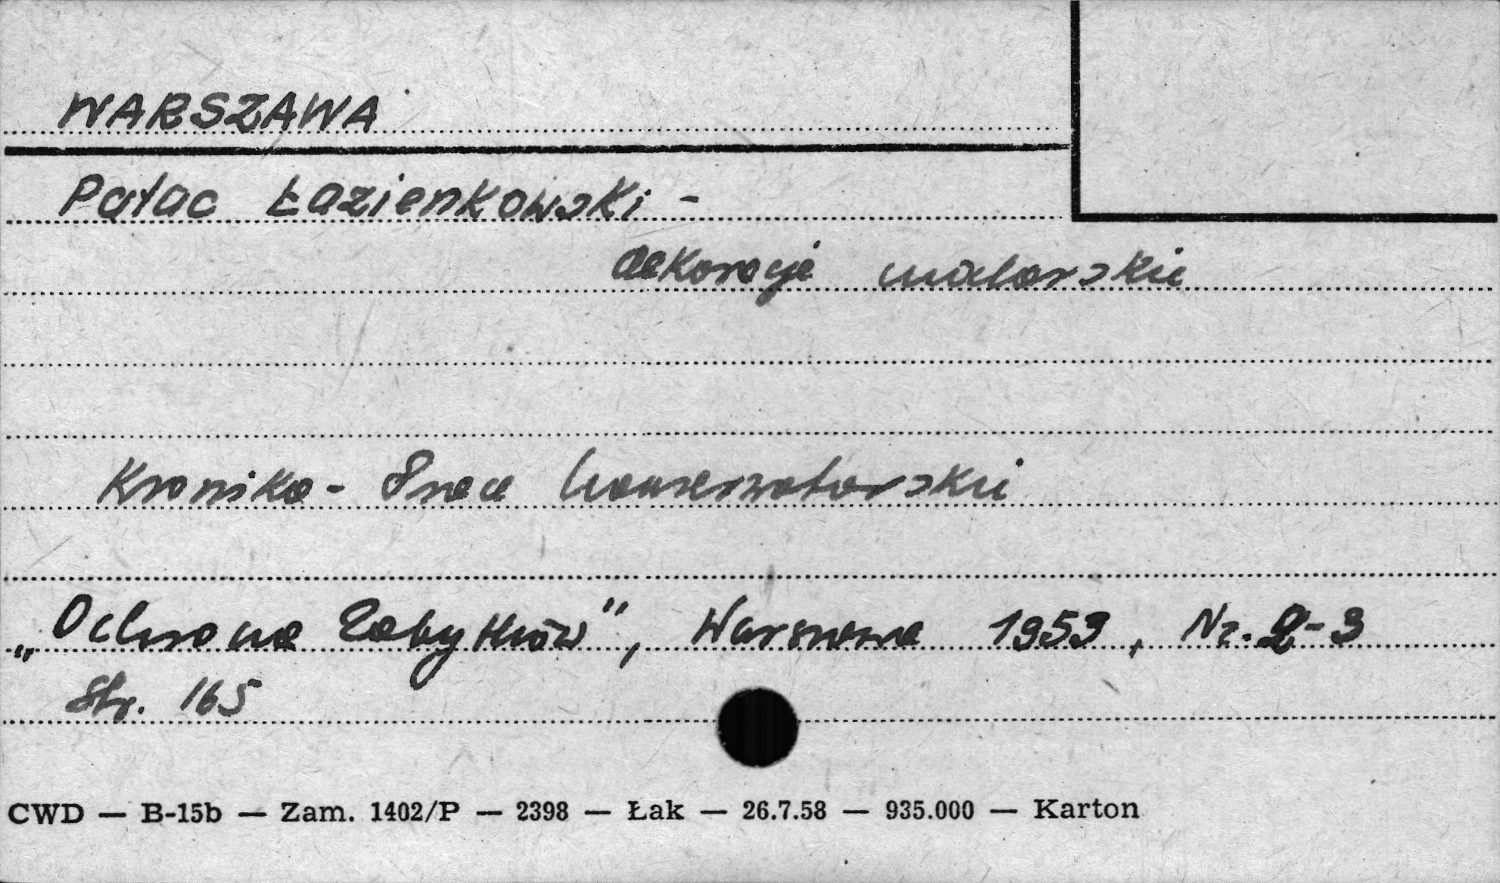 WARSZAWA
Pałac Łazienkowski -
dekoracje malarskie
Kronika - Prace konserwatorskie
„Ochrona Zabytków”, Warszawa 1953, Nr. 2-3
Str. 165
CWD — B-15b — Zam. 1402/P — 2398 — Łak — 26.7.58 — 935.000 — Karton